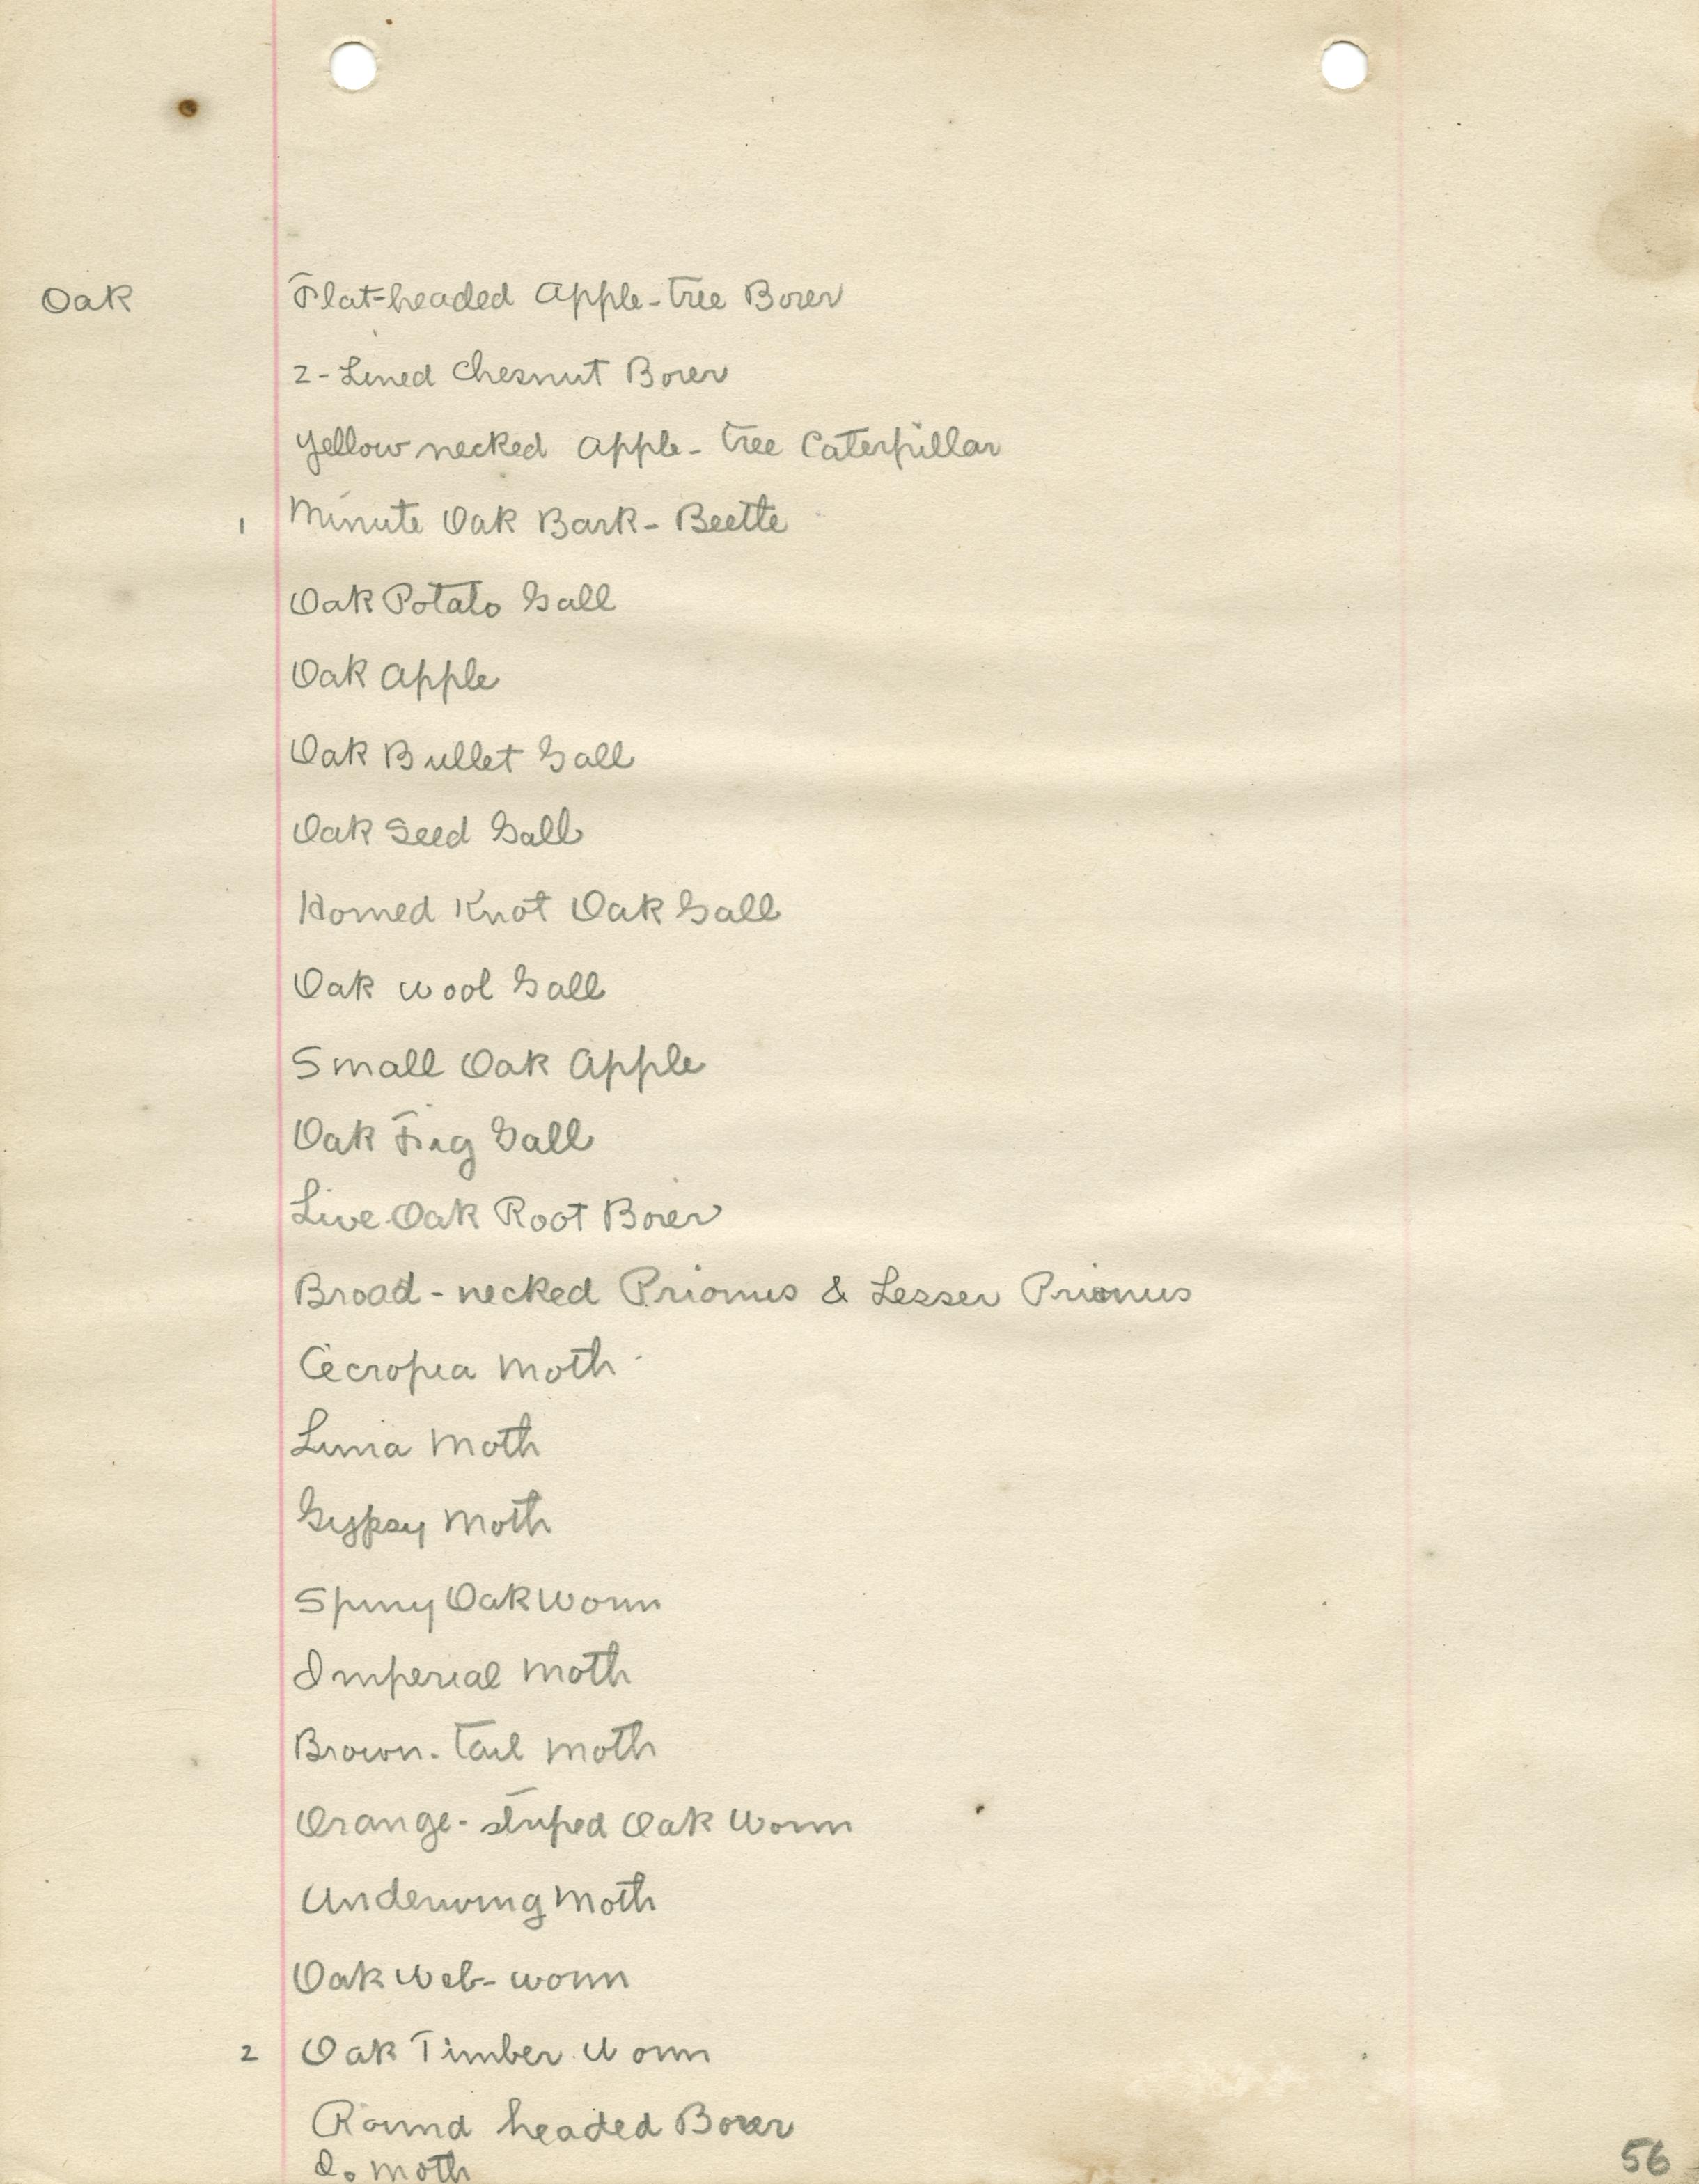 Oak Flat-headed Apple-tree Borer
2-Lined Chesnut Borer
Yellow necked Apple-tree Caterpillar
1 Minute Oak Bark-Beetle
Oak Potato Gall
Oak Apple
Oak Bullet Gall
Oak Seed Gall
Horned Knot Oak Gall
Oak Wool Gall
Small Oak Apple
Oak Fig Gall
Live Oak Root Borer
Broad-necked Prionus & Lesser Prionus
Cecropia Moth
Luna Moth
Gypsy Moth
Spiny Oak Worm
Imperial Moth
Brown-tail Moth
Orange-striped Oak Worm
Underwing Moth
Oak Web-worm
2 Oak Timber Worm
Round headed Borer
Io Moth
56